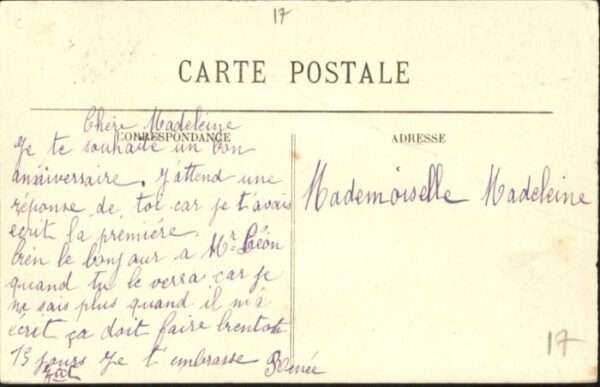 17
CARTE POSTALE
Chère Madeleine
CORRESPONDANCE
Je te souhaite un bon
anniversaire. J'attend une
réponse de toi car je t'avais
ecrit la première.
bien le bonjour a Mr Léon
quand tu le verra car je
ne sais plus quand il m'a
écrit ça doit faire
15 jours Je t'embrasse
Renée
ADRESSE
Mademoiselle Madeleine
17